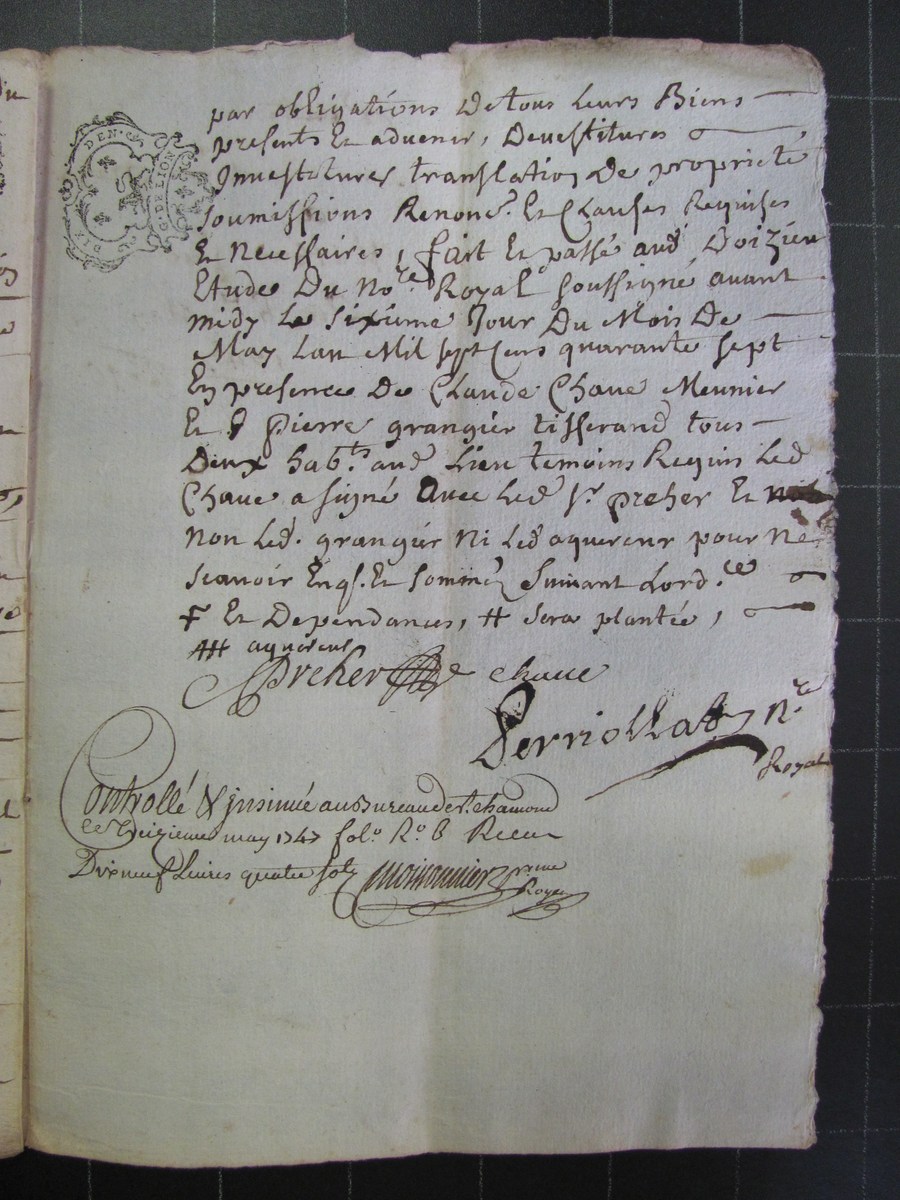 par obligations De tous Leurs Biens
presents Et advenir, Devestitures
Investitures translation De proprieté
soumissions Renonc.ⁿ Et Clauses Requises
Et Necessaires, fait Et passé aud Doizieu
Etude Du No.ʳᵉ Royal soussigné avant
midy Le sixieme Jour Du Mois De
May Lan Mil sept cens quarante sept
En presence De Claude Chave Meunier
Et Pierre grangier tisserand tous
Deux hab.ᵗˢ aud Lieu temoins Requis Led
Chave a signé Avec Led Sʳ. preher Et
non Led. grangier Ni Led aquereur pour ne
scavoir Enq. Et somméz Suivant Lord.ᶜᵉ
Et Dependances, # sera plantée,
aquereur
Preher Chave
Perriollat Nʳᵉ
Royal
Controllé & insinué au Bureau de Sᵗ. chamond
le treizieme may 1747 fol.º R.º 6 Receu
Dix neuf Livres quatre sols
DEN
G. DE LION